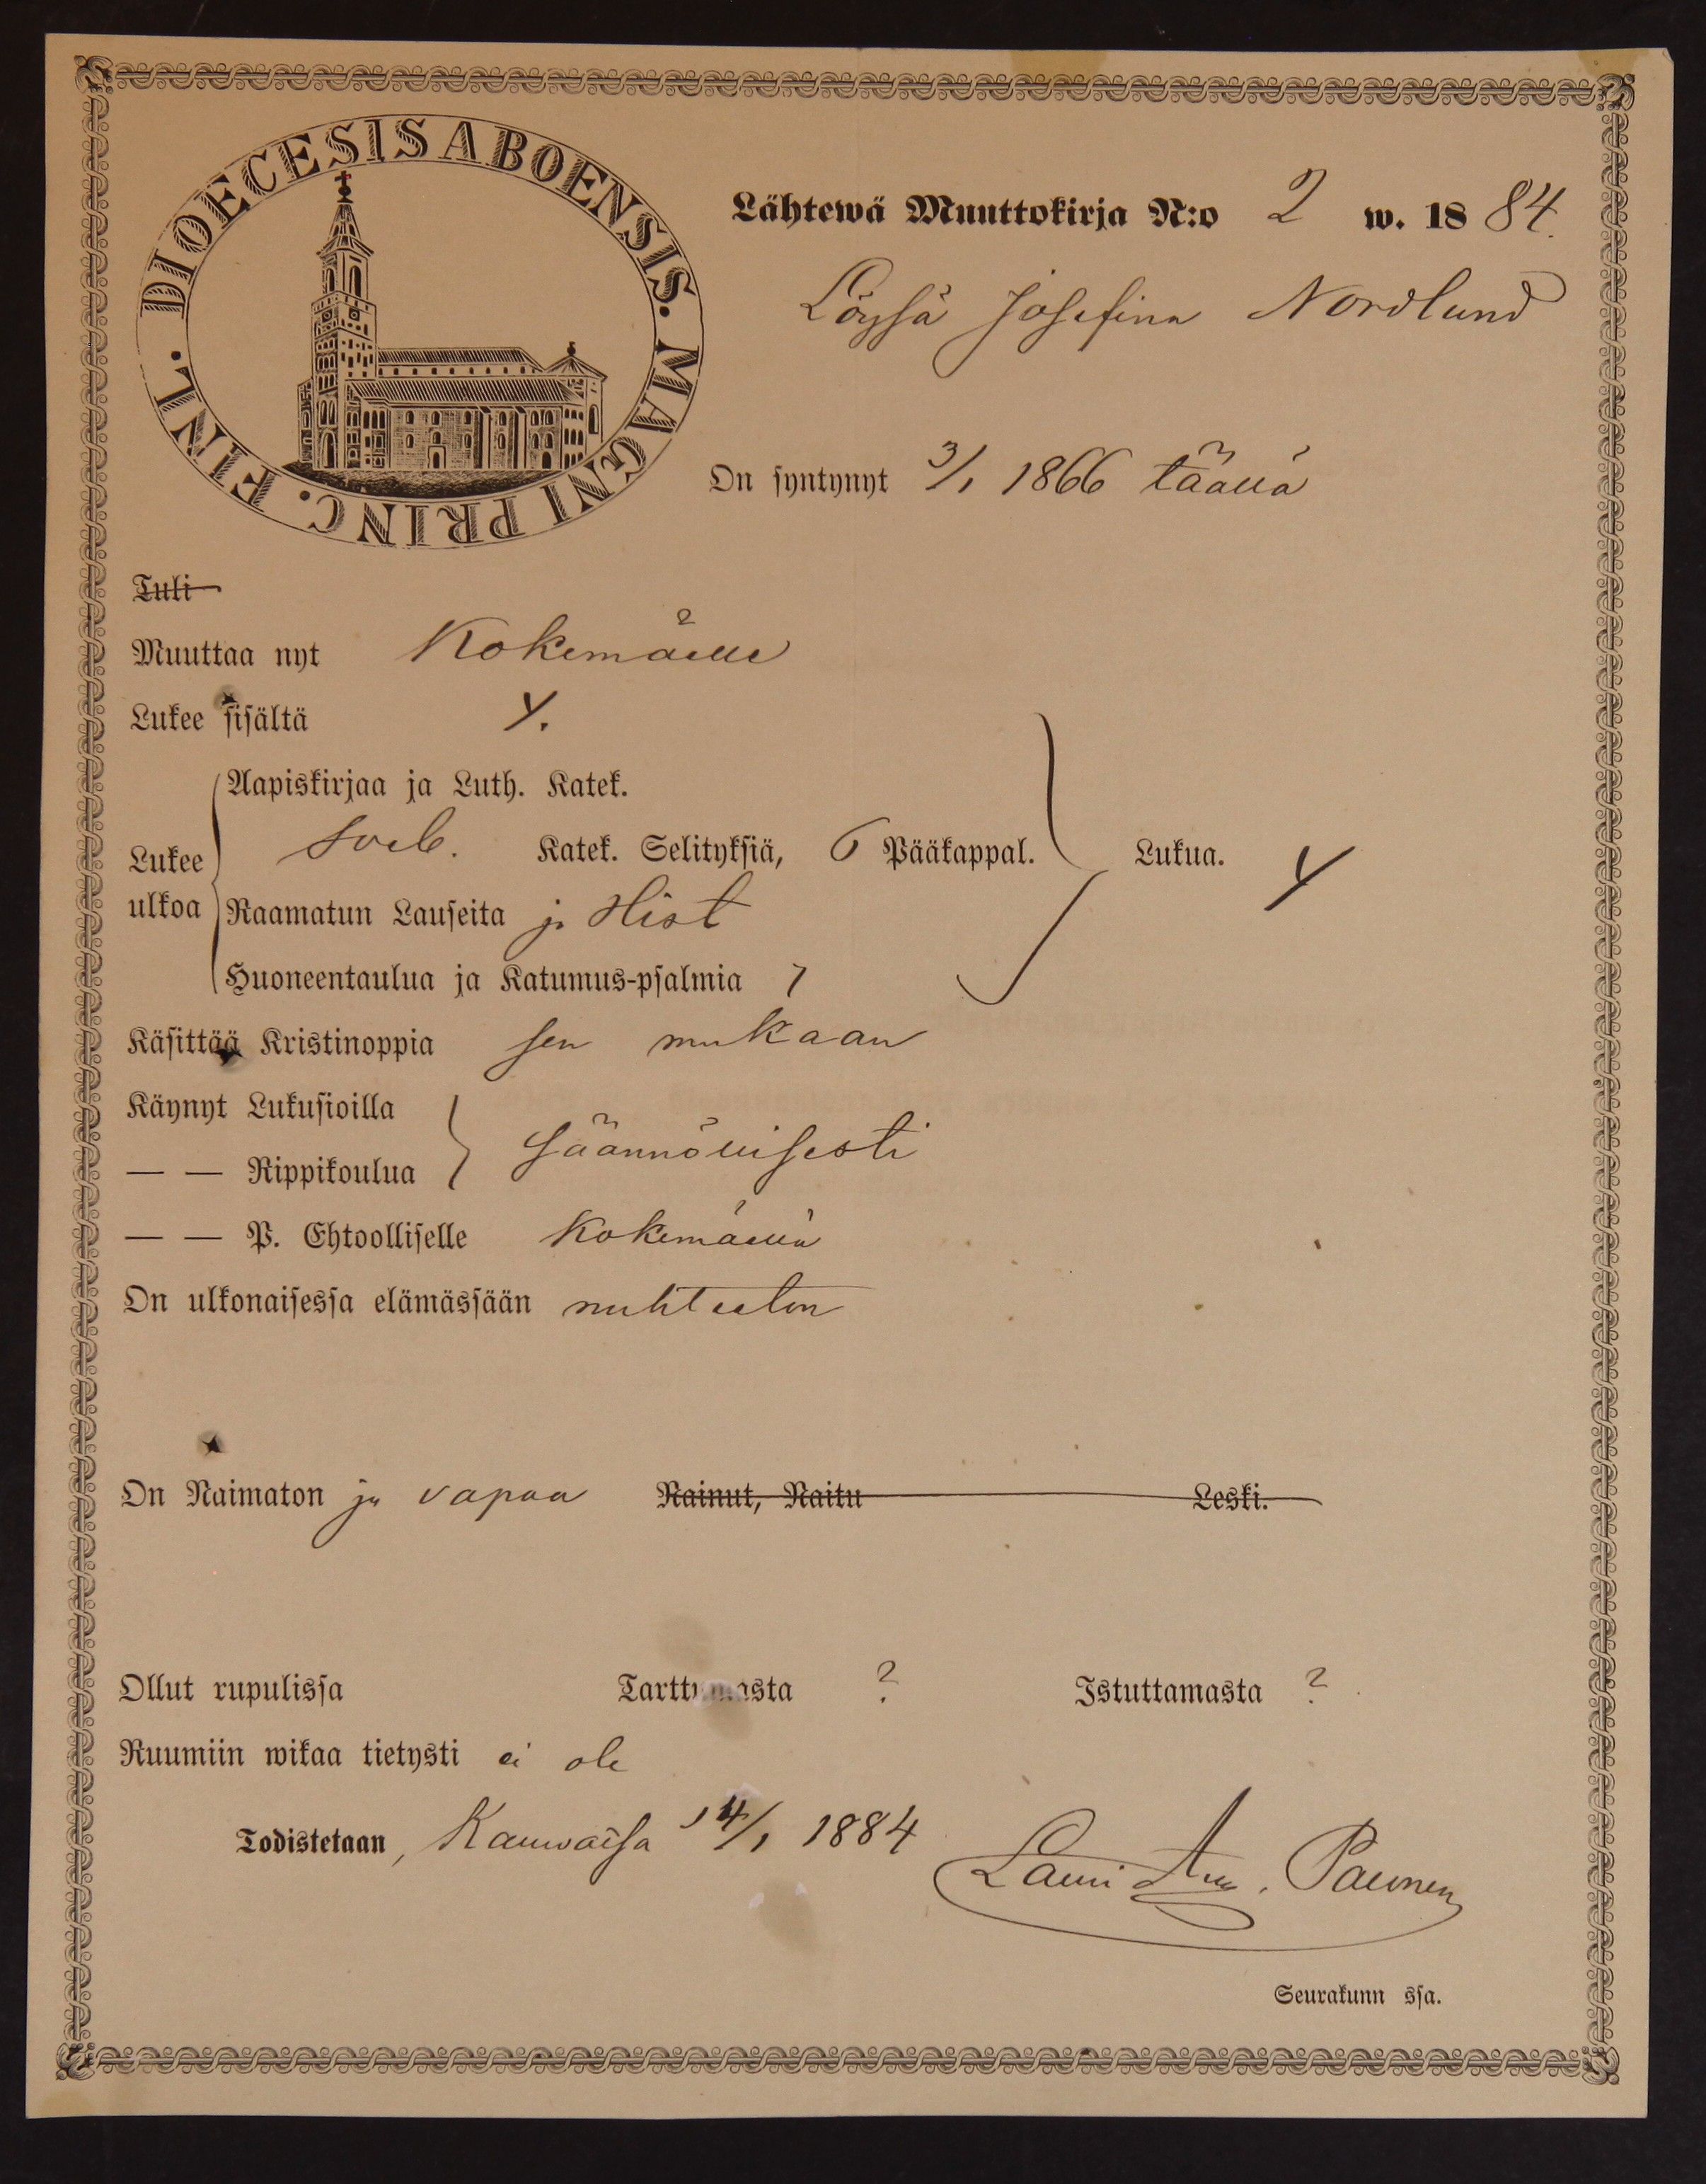 DIOECESIS ABOENSIS. MAGNI PRINC. FINL.
Lähtewä Muuttokirja N:o 2 w. 1884.
Löysä Josefina Nordlund
On syntynyt 3/1 1866 täällä
Tuli
Muuttaa nyt Kokemäelle
Lukee sisältä Y.
Aapiskirjaa ja Luth. Katek.
Lukee ulkoa Sveb. Katek. Selityksiä, 6 Pääkappal. Lukua. Y
Raamatun Lauseita ja Hist
Huoneentaulua ja Katumus-psalmia 7
Käsittää Kristinoppia sen mukaan
Käynyt Lukusioilla
— — Rippikoulua säännöllisesti
— — P. Ehtoolliselle Kokemäellä
On ulkonaisessa elämässään nuhteeton
On Naimaton ja vapaa Nainut, Naitu Leski.
Ollut rupulissa Tarttumasta ? Istuttamasta ?
Ruumiin wikaa tietysti ei ole
Todistetaan, Kauwatsa 14/1 1884 Lauri Aug. Paunen
Seurakunn ssa.